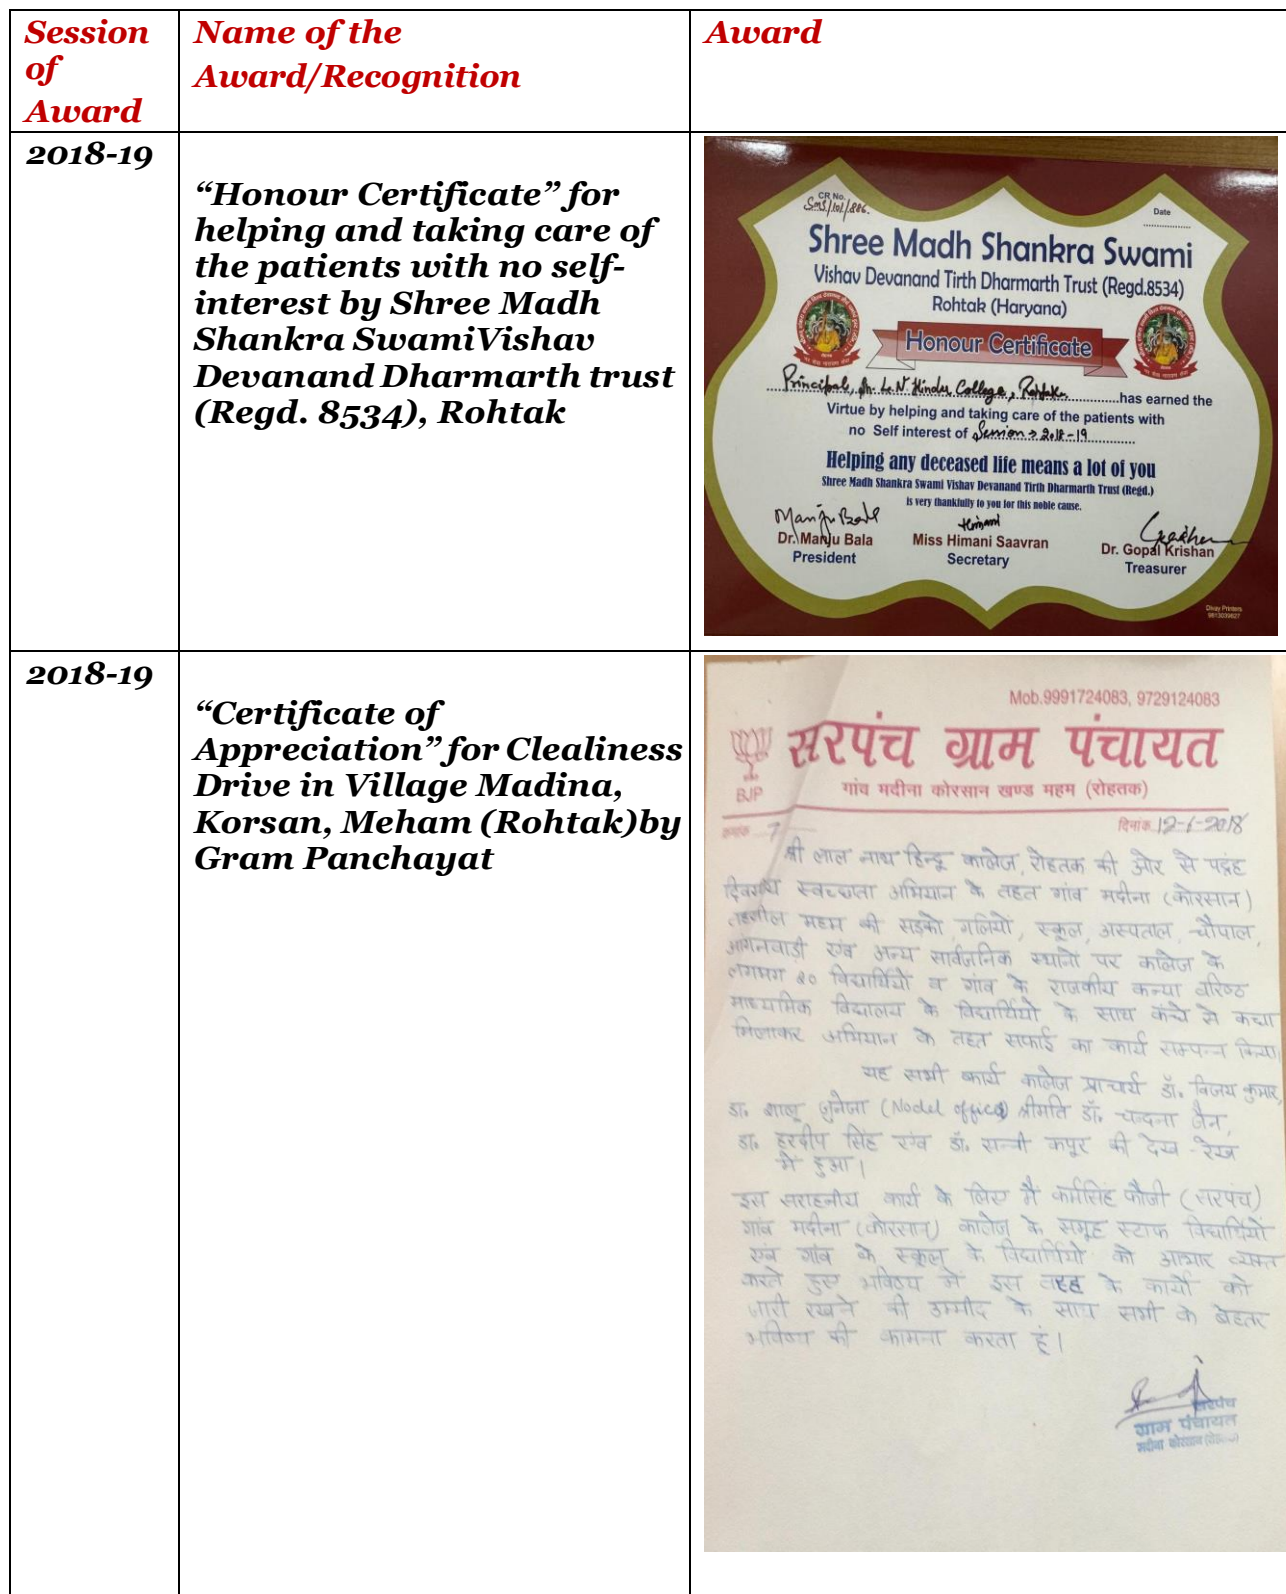 Session
of
Award
Name of the
Award/Recognition
Award
2018-19
“Honour Certificate” for
helping and taking care of
the patients with no self-
interest by Shree Madh
Shankra SwamiVishav
Devanand Dharmarth trust
(Regd. 8534), Rohtak
CR No.
Date
Shree Madh Shankra Swami
Vishav Devanand Tirth Dharmarth Trust (Regd.8534)
Rohtak (Haryana)
Honour Certificate
Principal, Sh. L. N. Hindu College, Rohtak has earned the
Virtue by helping and taking care of the patients with
no Self interest of Session > 2018-19
Helping any deceased life means a lot of you
Shree Madh Shankra Swami Vishav Devanand Tirth Dharmarth Trust (Regd.)
is very thankfully to you for this noble cause.
Manju Bala
Himani
Dr. Manju Bala
Miss Himani Saavran
Dr. Gopal Krishan
President
Secretary
Treasurer
Divay Printers
2018-19
“Certificate of
Appreciation” for Clealiness
Drive in Village Madina,
Korsan, Meham (Rohtak)by
Gram Panchayat
Mob.9991724083, 9729124083
सरपंच ग्राम पंचायत
BJP
गांव मदीना कोरसान खण्ड महम (रोहतक)
क्रमांक 7
दिनांक 12-6-2018
श्री लाल नाथ हिन्दू कालेज, रोहतक की ओर से पद्रंह
दिवसीय स्वच्छता अभियान के तहत गांव मदीना (कोरसान)
तहसील महम की सड़को, गलियों, स्कूल, अस्पताल, चौपाल,
आंगनवाड़ी एंव अन्य सार्वजनिक स्थानों पर कालेज के
लगभग 20 विद्यार्थियों व गांव के राजकीय कन्या वरिष्ठ
माध्यमिक विद्यालय के विद्यार्थियों के साथ कंधे से कन्धा
मिलाकर अभियान के तहत सफाई का कार्य सम्पन्न किया।
यह सभी कार्य कालेज प्राचार्य डॉ. विजय कुमार,
डा. शालू जुनेजा (Nodel officer) श्रीमति डॉ. चन्दना जैन,
डा. हरदीप सिंह एंव डॉ. सन्नी कपूर की देख-रेख
में हुआ।
इस सराहनीय कार्य के लिए मैं कर्मसिंह फौजी (सरपंच)
गांव मदीना (कोरसान) कालेज के समूह स्टाफ विद्यार्थियों
एंव गांव के स्कूल के विद्यार्थियों को आभार व्यक्त
करते हुए भविष्य में इस तरह के कार्यो को
जारी रखने की उम्मीद के साथ सभी के बेहतर
भविष्य की कामना करता हूं।
सरपंच
ग्राम पंचायत
मदीना कोरसान